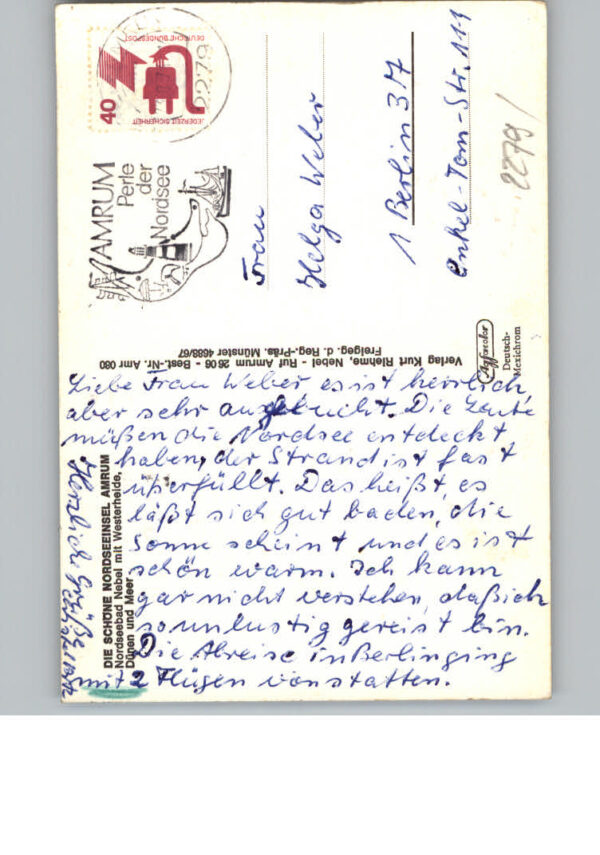 DEUTSCHE BUNDESPOST
40
JEDERZEIT SICHERHEIT
2279
AMRUM
Perle
der
Nordsee
Frau
Helga Weber
1 Berlin 37
Onkel-Tom-Str. 111
2279/
Verlag Kurt Riehme, Nebel - Ruf Amrum 26 06 - Best.-Nr. Amr 080
Freigeg. d. Reg.-Präs. Münster 4688/67
Agfacolor
Deutsch-
Mexichrom
DIE SCHÖNE NORDSEEINSEL AMRUM
Nordseebad Nebel mit Westerheide,
Dünen und Meer
Liebe Frau Weber es ist herrlich,
aber sehr ausgebucht. Die Leute
müßen die Nordsee entdeckt
haben, der Strand ist fast
überfüllt. Das heißt, es
läßt sich gut baden, die
Sonne scheint und es ist
schön warm. Ich kann
gar nicht verstehen, daß ich
so unlustig gereist bin.
Die Abreise in Berlin ging
mit 2 Flügen vonstatten.
Herzliche Grüße